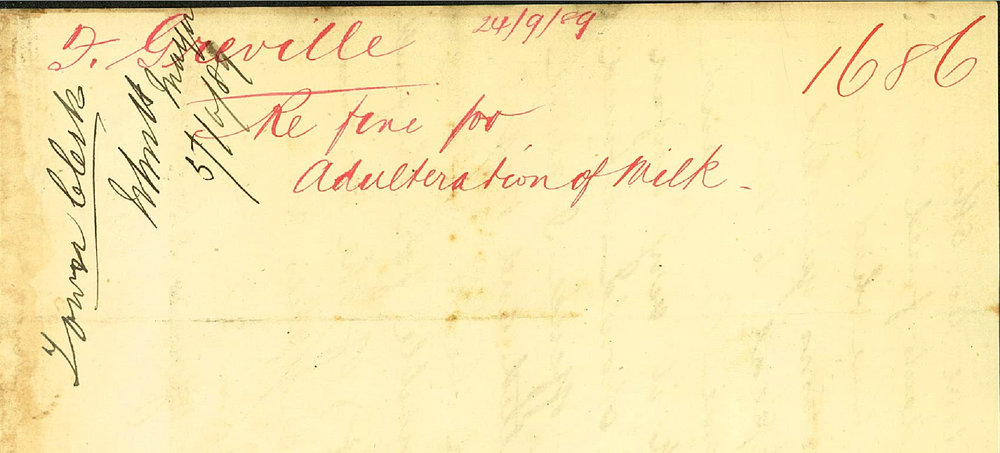 F. Greville
24/9/89
1686
Re fine for
Adulteration of Milk -
Town Clerk
Mayor
5/10/89